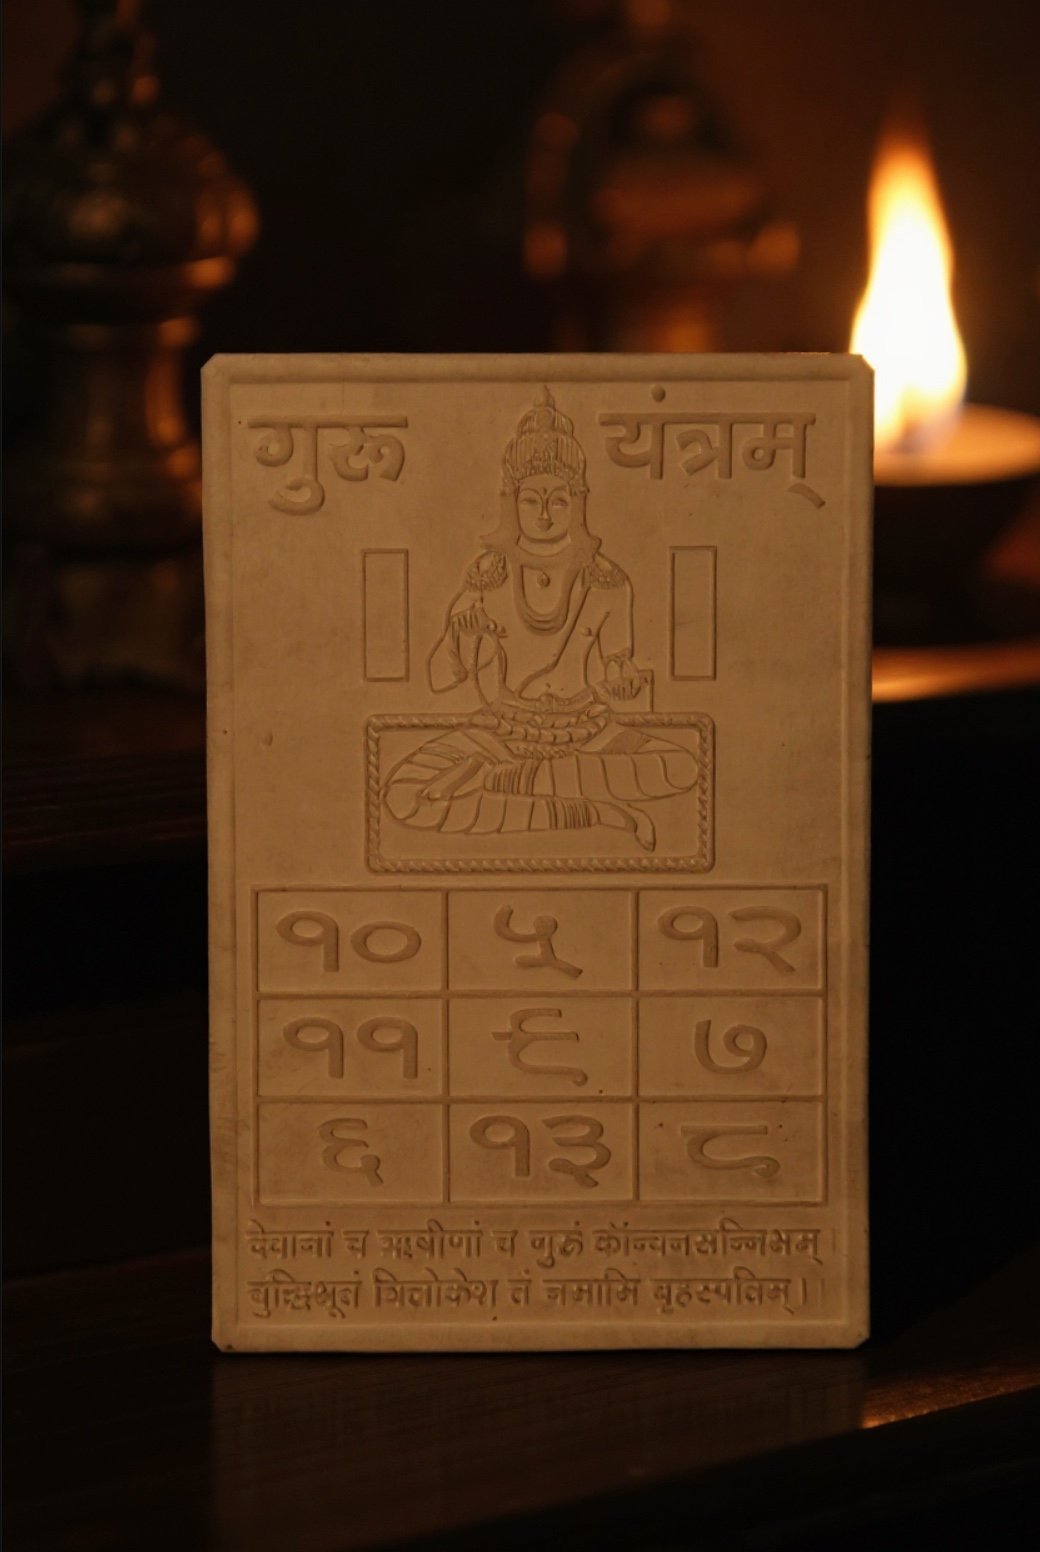 गुरू यंत्रम्
१० ५ १२
११ ९ ७
६ १३ ८
देवानां च ऋषीणां च गुरुं काँन्चनसन्निभम् |
बुन्द्धिभूतं त्रिलोकेश तं नमामि बृहस्पतिम् ||